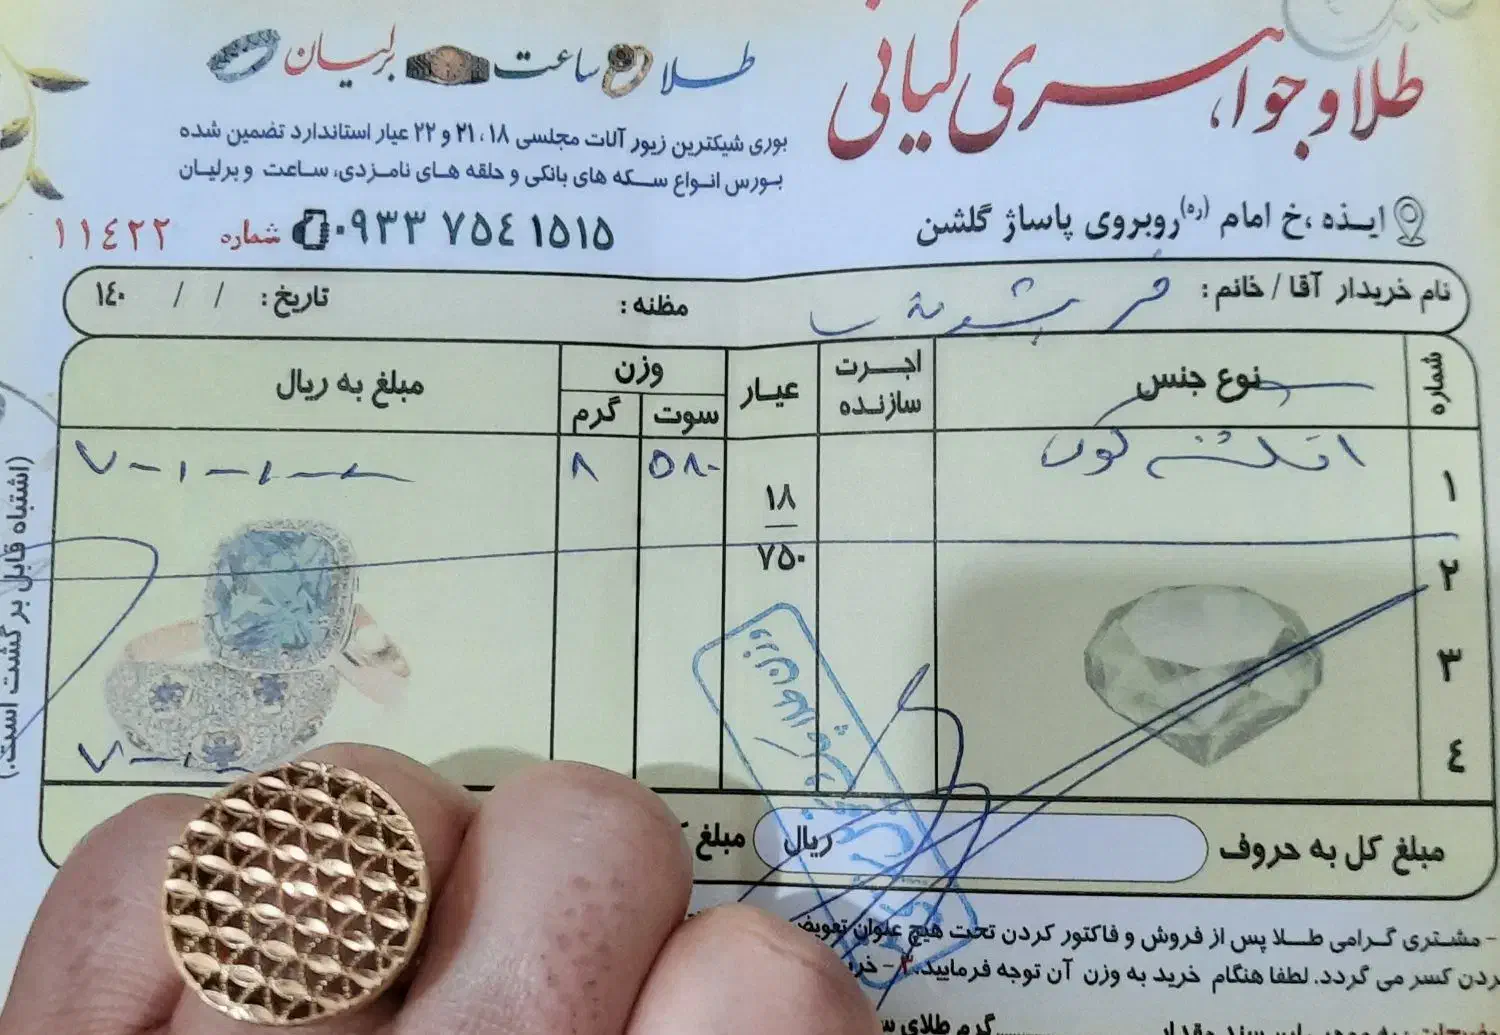 طلا و جواهری کیانی
طلا ساعت برلیان
بوری شیکترین زیور آلات مجلسی ۱۸، ۲۱ و ۲۲ عیار استاندارد تضمین شده
بورس انواع سکه های بانکی و حلقه های نامزدی، ساعت و برلیان
ایذه ،خ امام (ره) روبروی پاساژ گلشن
۰۹۳۳ ۷۵۴ ۱۵۱۵
شماره ۱۱۴۲۲
نام خریدار آقا / خانم : مظنه : تاریخ : / / ۱۴۰
شماره نوع جنس اجرت سازنده عیار وزن مبلغ به ریال
سوت گرم
۱ ۵۸۰ ۸
۱۸
۷۵۰
۲
۳
۴
مبلغ کل به حروف ریال مبلغ
- مشتری گرامی طلا پس از فروش و فاکتور کردن تحت هیچ عنوان تعویض
کسر می گردد. لطفا هنگام خرید به وزن آن توجه فرمایید.
گرم طلای
(اشتباه قابل برگشت است.)